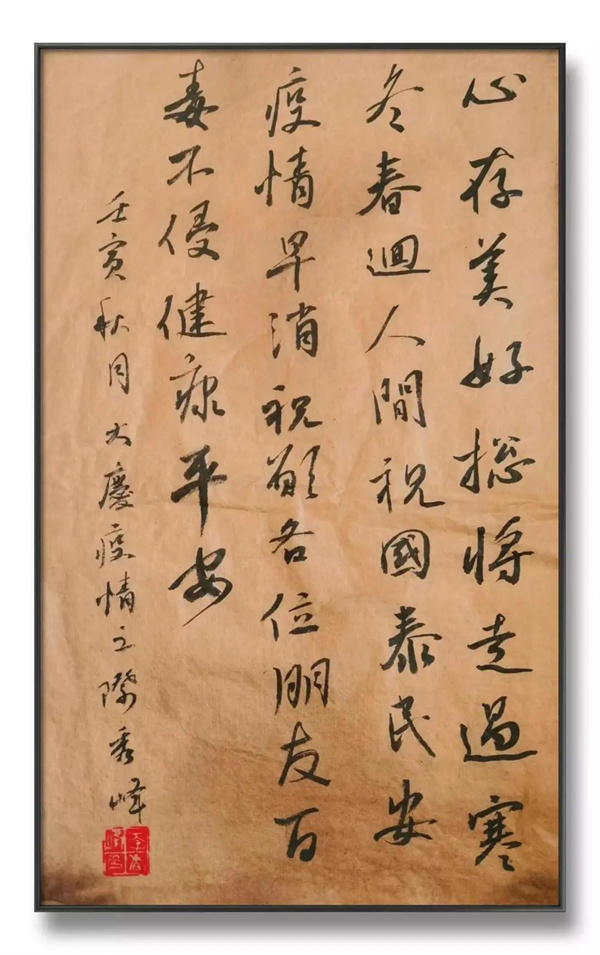 心存美好总将走過寒
冬春迴人間祝國泰民安
疫情早消祝願各位朋友百
毒不侵健康平安
壬寅秋月大慶疫情之際秀峰